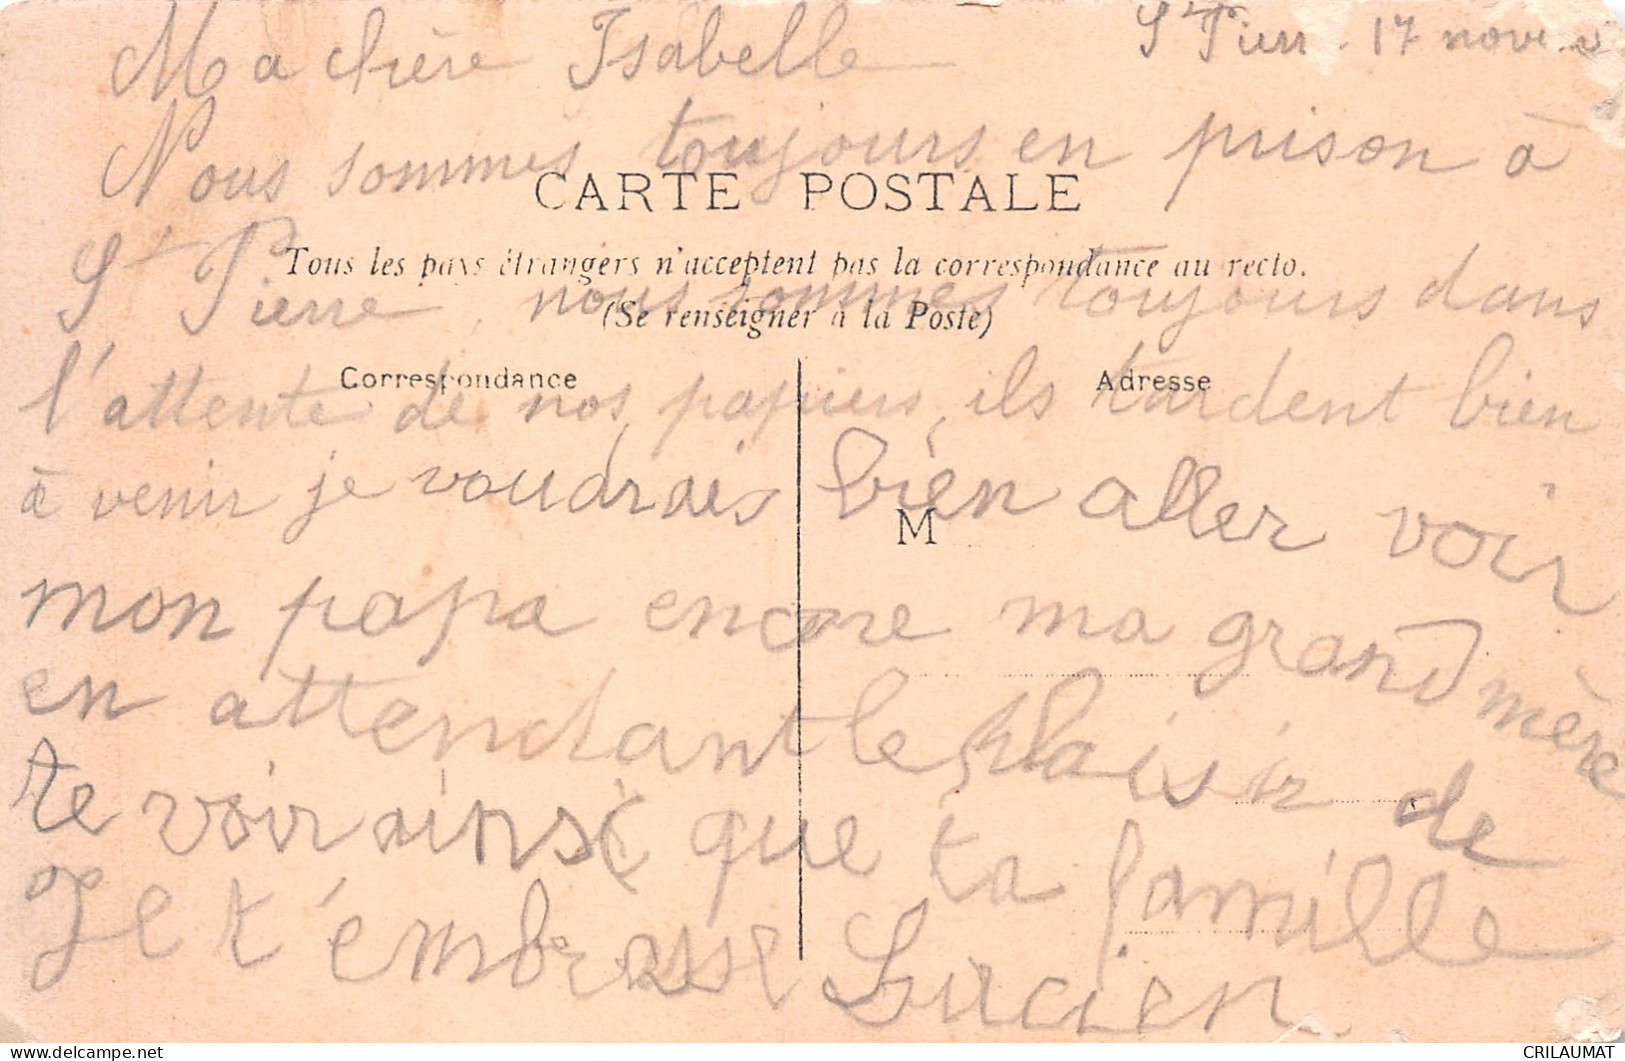 St Pierre 17 nov
Ma chère Isabelle
Nous sommes toujours en prison à
CARTE POSTALE
St Pierre, nous sommes toujours dans
Tous les pays étrangers n'acceptent pas la correspondance au recto.
(Se renseigner à la Poste)
Correspondance
Adresse
l'attente de nos papiers, ils tardent bien
à venir je voudrais bien aller voir
M
mon papa encore ma grand mère
en attendant le plaisir de
te voir ainsi que ta famille
Je t'embrasse Lucien.
CRILAUMAT